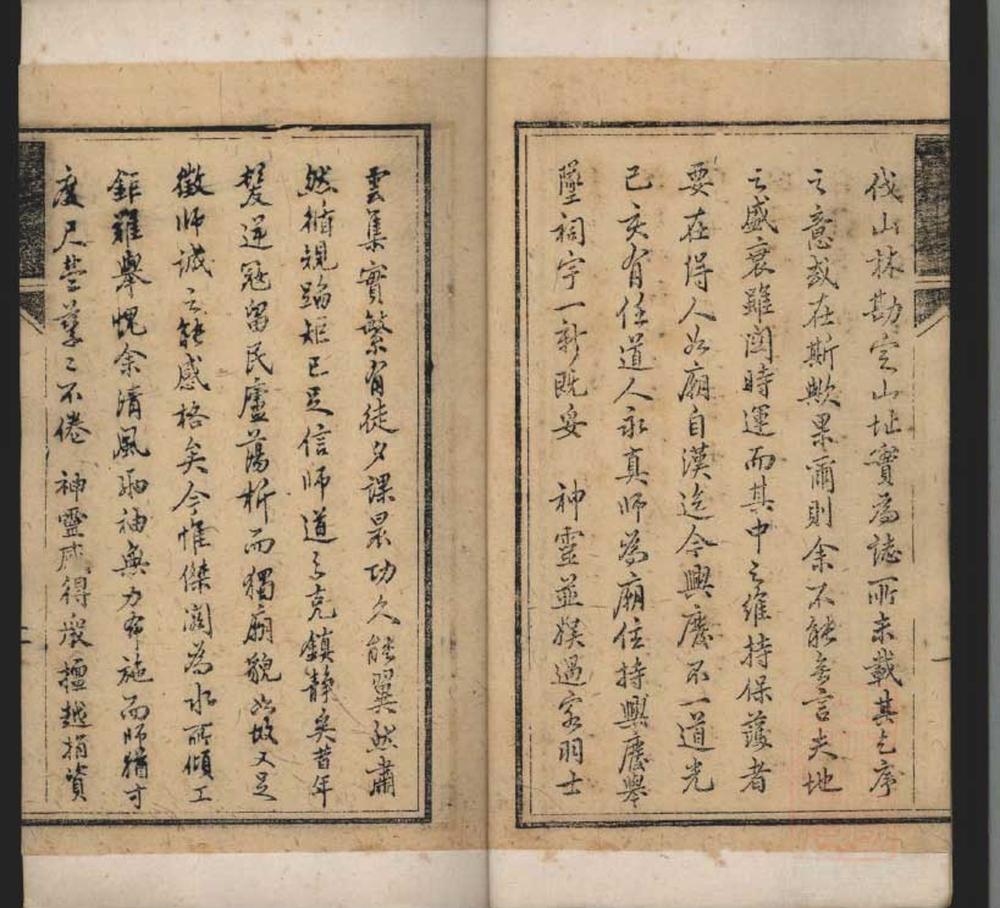 伐山林勘定山址實為誌所未載其乞序
之意或在斯歟果爾則余不能無言夫地
之盛衰雖關時運而其中之維持保護者
要在得人如廟自漢迄今興廢不一道光
己亥有任道人永真師為廟住持興廢舉
墜祠宇一新既妥　神靈並娛過客羽士
雲集實繁有徒夕課晨功久能翼然肅
然循規蹈矩已足信師道之克鎮静矣昔年
髮逆寇留民廬蕩析而獨廟貌如故又足
徵師誠之能感格矣今惟傑閣為水所傾工
鉅難舉愧余清風兩袖無力布施而師積寸
度尺孳孳不倦　神靈感得眾擅越捐資